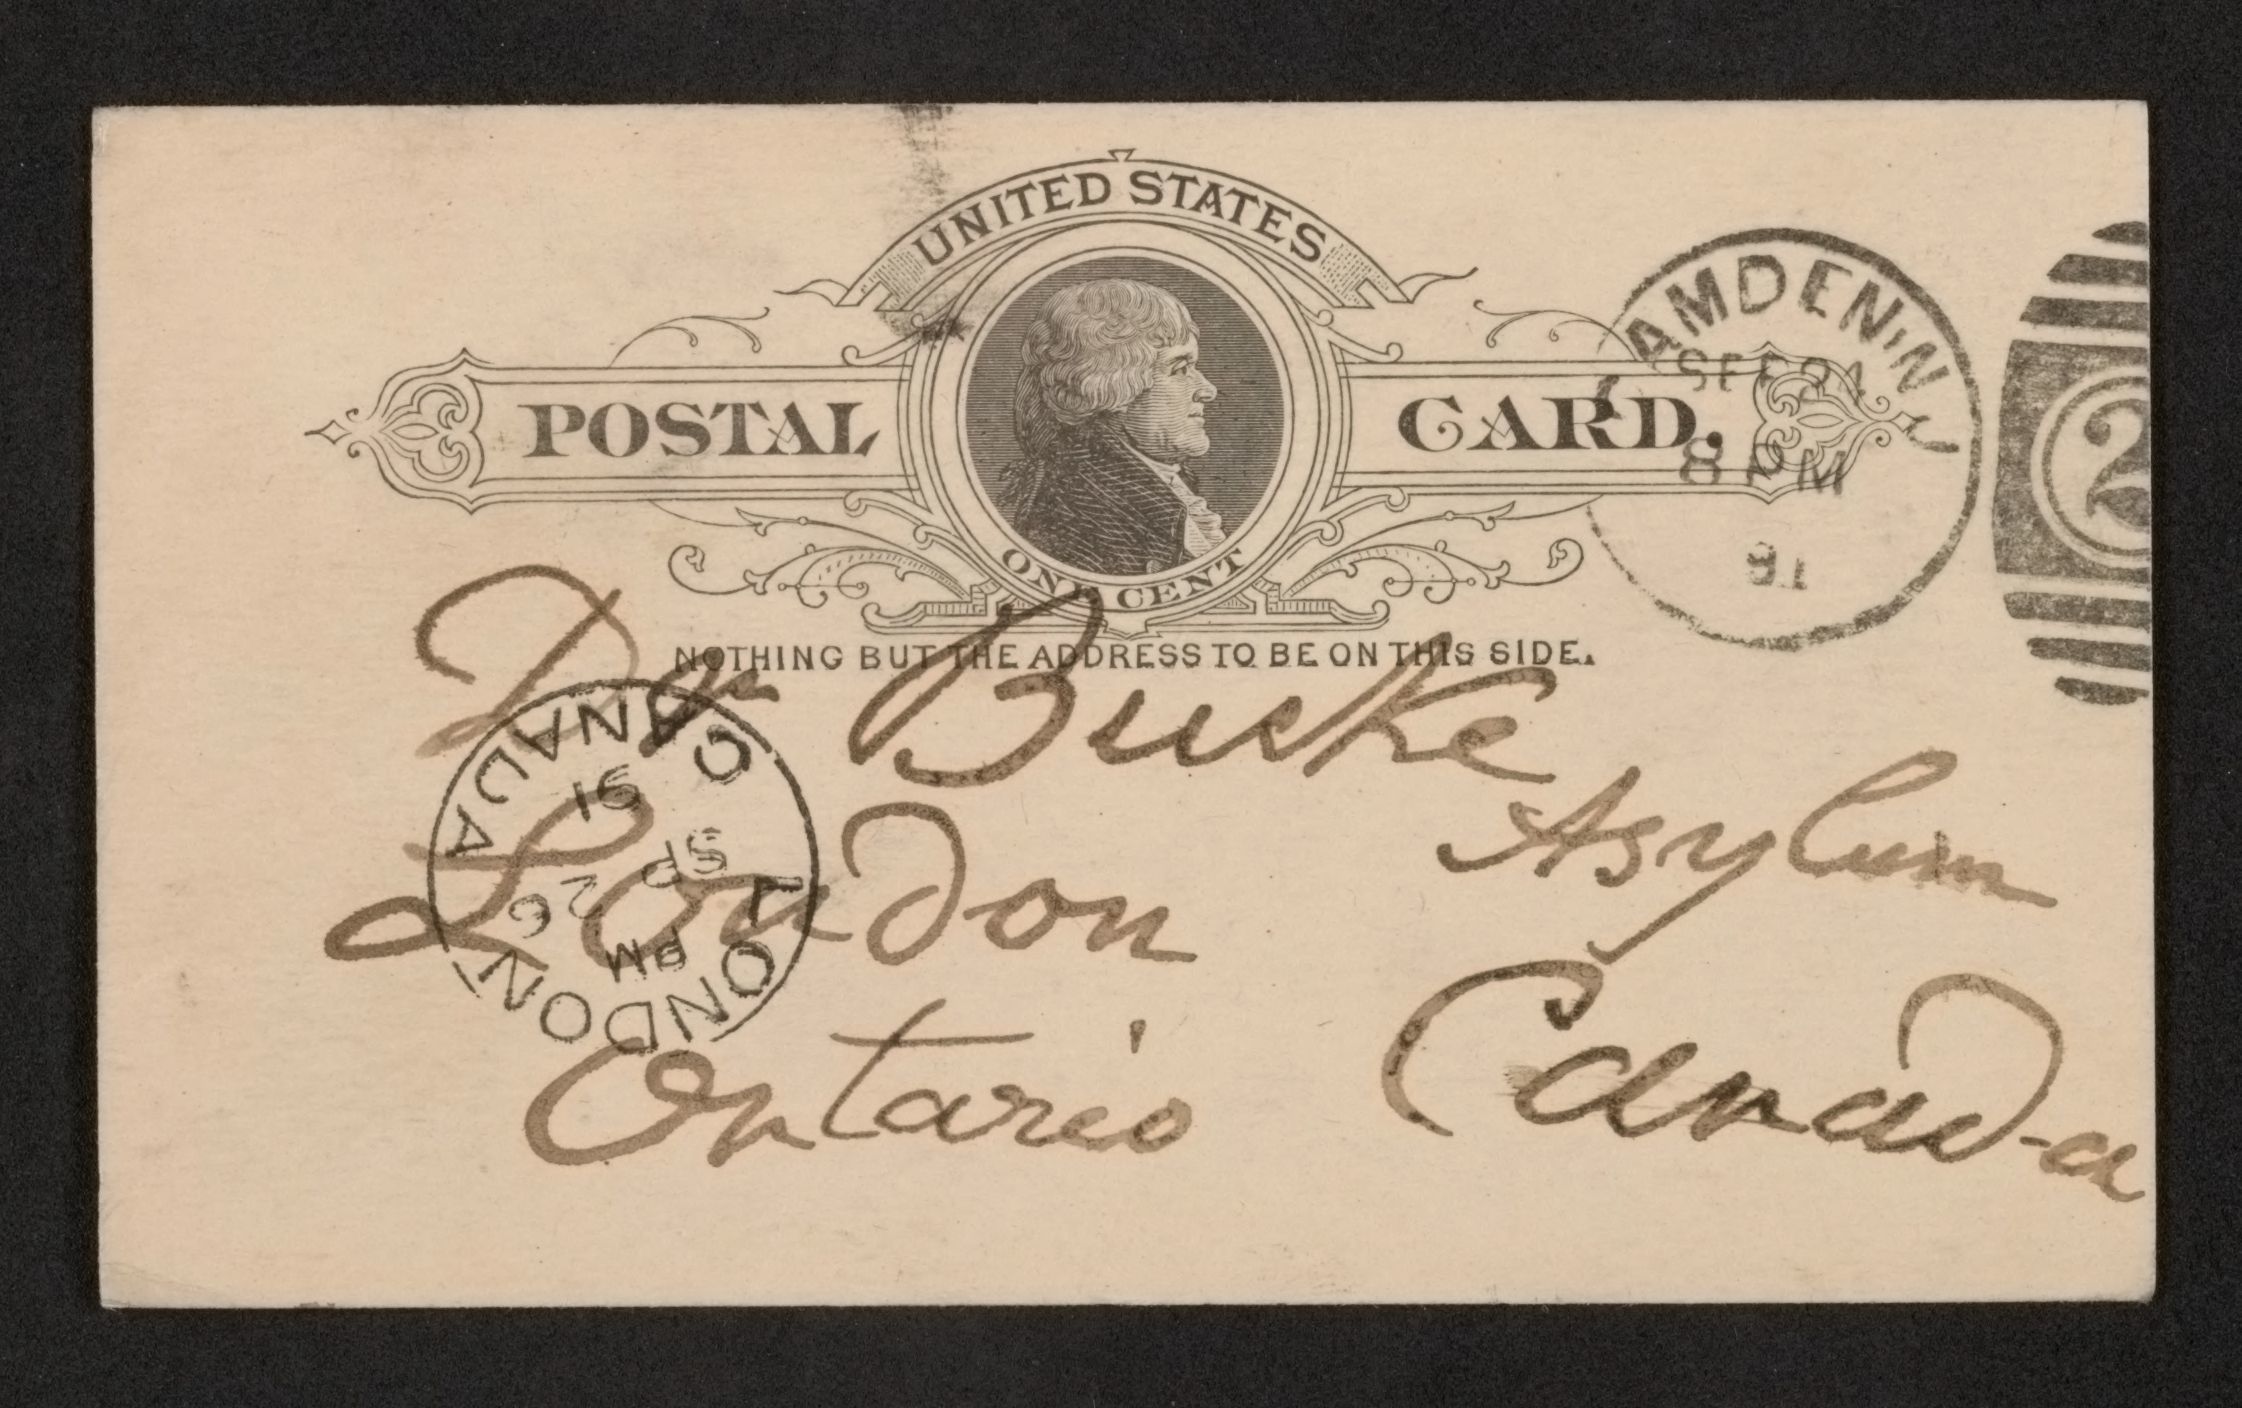 UNITED STATES
POSTAL CARD.
ONE CENT
NOTHING BUT THE ADDRESS TO BE ON THIS SIDE.
CAMDEN, N.J.
8 PM
91
2
Dr Bucke
Asylum
London
Ontario Canada
LONDON CANADA
PM
SP 26
91